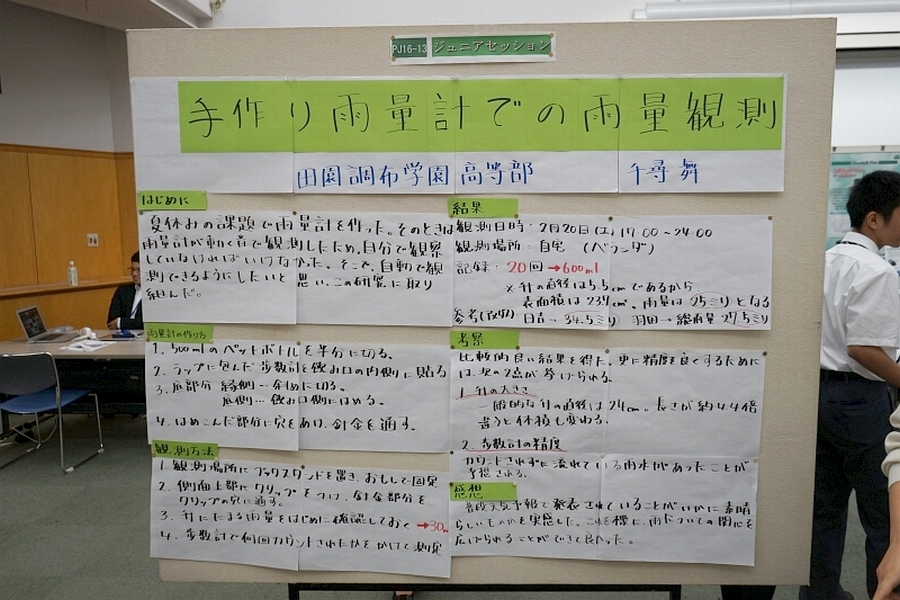 PJ16-13 ジュニアセッション
手作り雨量計での雨量観測
田園調布学園 高等部 千尋 舞
はじめに
夏休みの課題で雨量計を作った。そのときは
雨量計が動く音で観測したため、自分で観察
していなければいけなかった。そこで、自動で観
測できるようにしたいと思い、この研究に取り
組んだ。
雨量計の作り方
1. 500mlのペットボトルを半分に切る。
2. ラップに包んだ歩数計を飲み口の内側に貼る
3. 底部分 縁側…斜めに切る。
底側…飲み口側にはめる。
4. はめこんだ部分に穴をあけ、針金を通す。
観測方法
1. 観測場所にブックスタンドを置き、おもしで固定
2. 側面上部にクリップをつけ、針金部分を
クリップの穴に通す。
3. 升にたまる雨量をはじめに確認しておく→30ml
4. 歩数計で何回カウントされたかをかけて測定
結果
観測日時：2月20日(土) 17:00～24:00
観測場所：自宅 (ベランダ)
記録：20回→600ml
※升の直径は5.5cmであるから
表面積は23.7cm²。雨量は25ミリとなる
参考(アメダス) 日吉→34.5ミリ 羽田→総雨量27.5ミリ
考察
比較的良い結果を得た。更に精度を良くするために
は、次の2点が挙げられる。
1. 升の大きさ
一般的な升の直径は24cm。長さが約4.4倍
違うと体積も変わる。
2. 歩数計の精度
カウントされずに流れている雨水があったことが
予想される。
感想
普段天気予報で発表されていることがいかに素晴
らしいものかを実感した。これを機に、雨についての関心を
広げられることができて良かった。